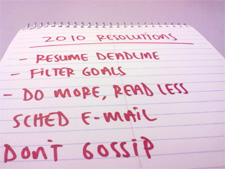 2010 RESOLUTIONS
- RESUME DEADLINE
- FILTER GOALS
- DO MORE, READ LESS
SCHED E-MAIL
DON'T GOSSIP